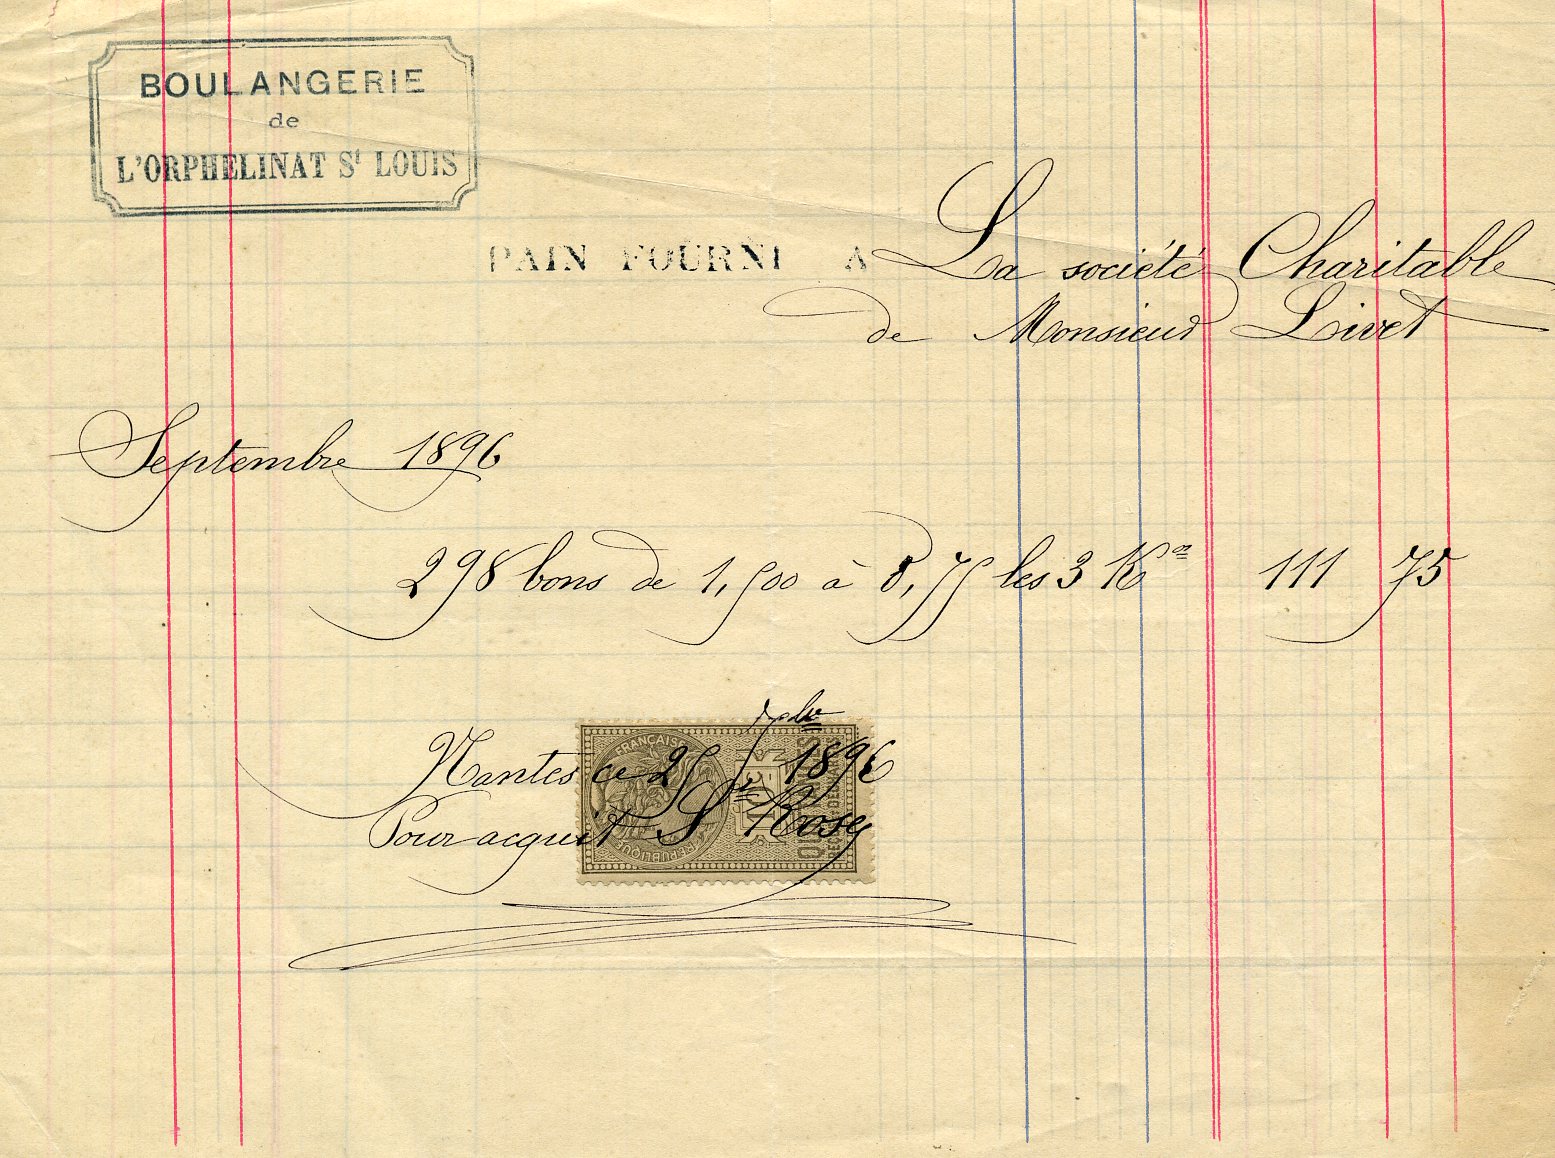 BOULANGERIE
de
L'ORPHELINAT St LOUIS
PAIN FOURNI A La société Charitable
de Monsieur Livet
Septembre 1896
298 bons de 1,500 à 0,75 les 3 Kos 111 75
7bre
Nantes ce 25 1896
Pour acquit Sr Rosy
FRANÇAISE
RÉPUBLIQUE